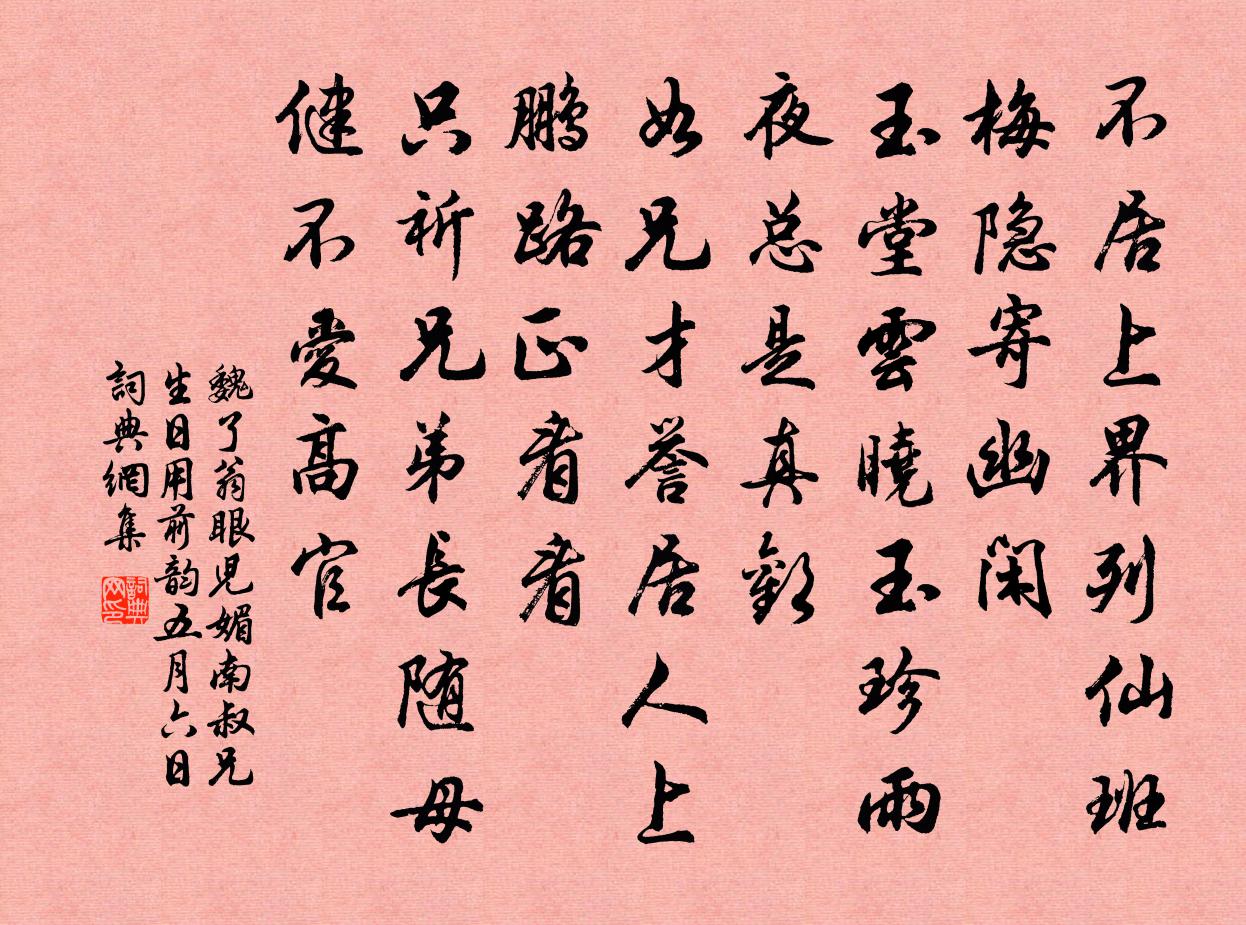 不居上界列仙班
梅隐寄幽闲
玉堂雲曉玉珍雨
夜总是真歡
如兄才誉居人上
鹏路正看看
只祈兄弟長随母
健不愛高官
魏了翁眼児媚南叔兄
生日用前韵五月六日
詞典網集
詞典